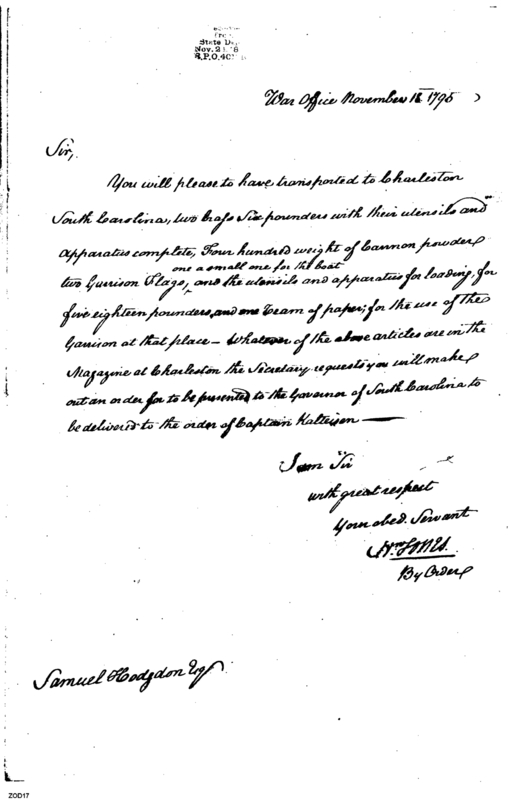 from
State De
Nov. 2
S.P.O. 40
War Office November 18 1795
Sir,
You will please to have transported to Charleston
South Carolina, two brass Six pounders with their utensils and
apparatus complete, Four hundred weight of Cannon powder
one a small one for the boat
two Garrison Flags, and the utensils and apparatus for loading, for
five eighteen pounders, and one Ream of paper; for the use of the
Garrison at that place — Whatever of the above articles are in the
Magazine at Charleston the Secretary requests you will make
out an order for to be presented to the Governor of South Carolina to
be delivered to the order of Captain Kalteisen
I am Sir
with great respect
Your obed. Servant
Wm Jones.
By Order
Samuel Hodgdon Esqr
ZOD17